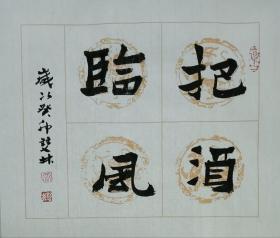 把酒
臨風
歲次癸卯